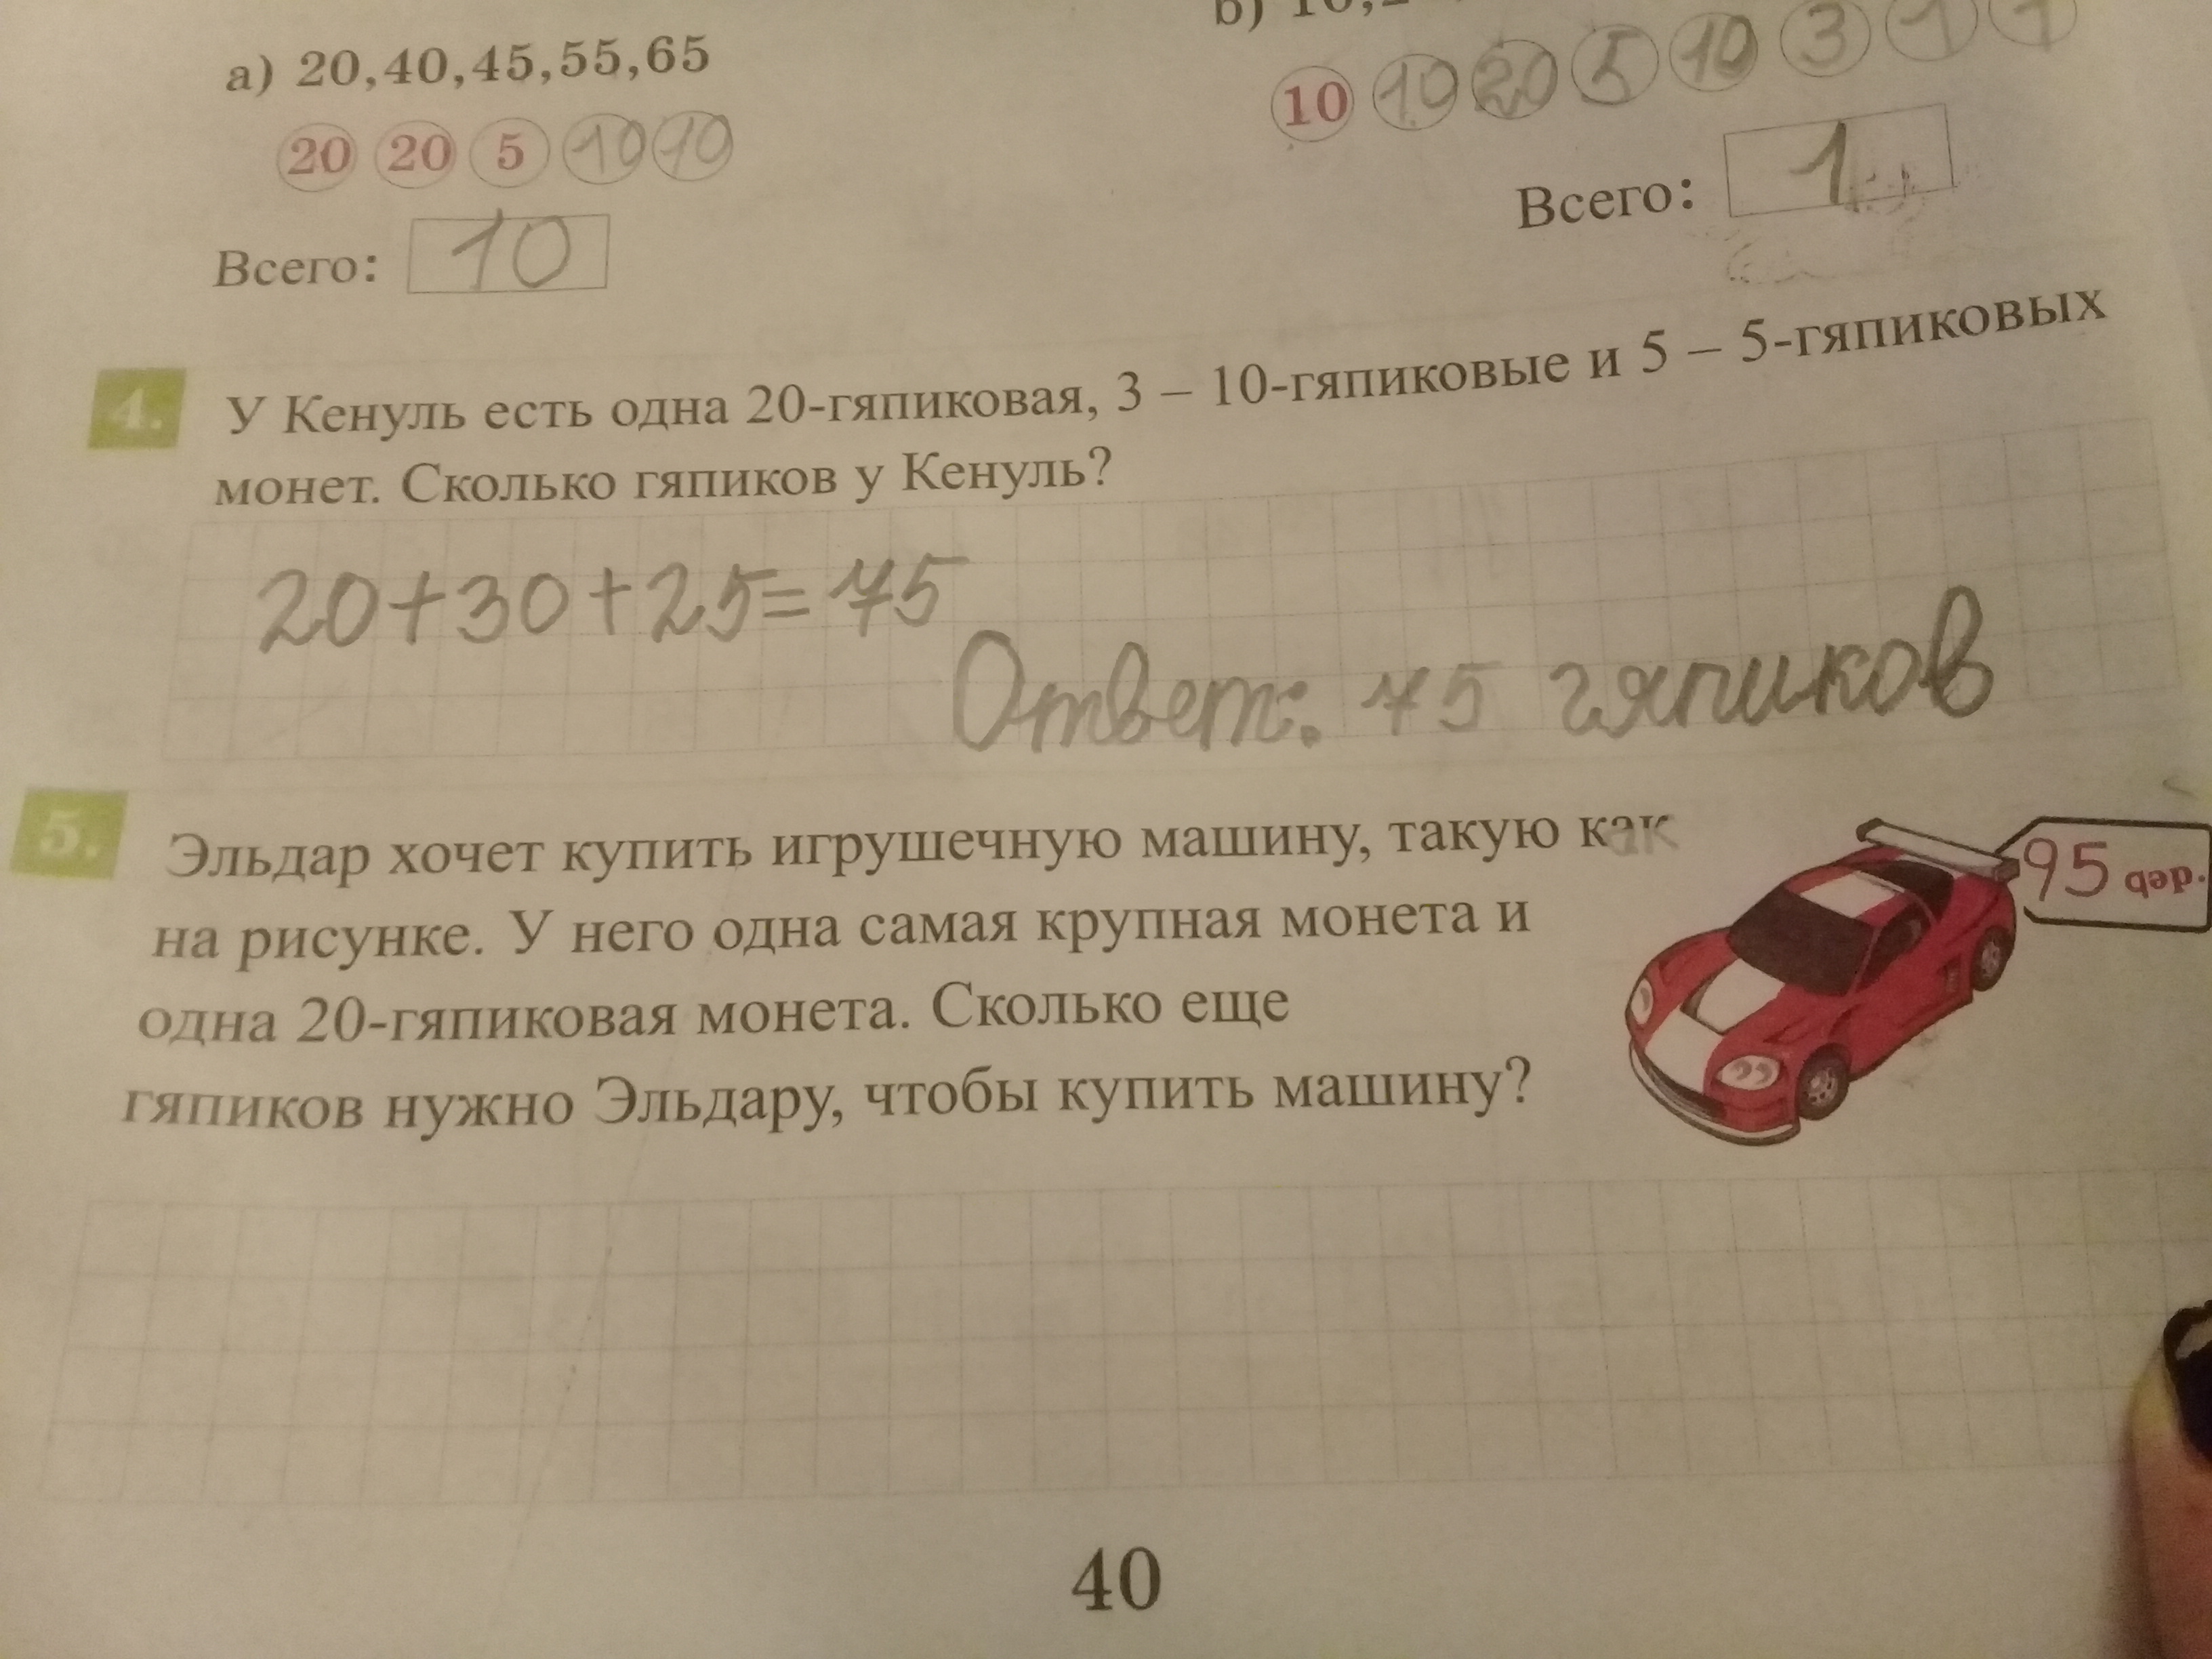 a) 20,40,45,55,65
20 20 5 10 10
Всего: 10
b) 10,
10 10 20 5 10 3 1 1
Всего: 1
4. У Кенуль есть одна 20-гяпиковая, 3 – 10-гяпиковые и 5 – 5-гяпиковых
монет. Сколько гяпиков у Кенуль?
20+30+25=75
Ответ: 75 гяпиков
5. Эльдар хочет купить игрушечную машину, такую как
на рисунке. У него одна самая крупная монета и
одна 20-гяпиковая монета. Сколько еще
гяпиков нужно Эльдару, чтобы купить машину?
95 qəp.
40